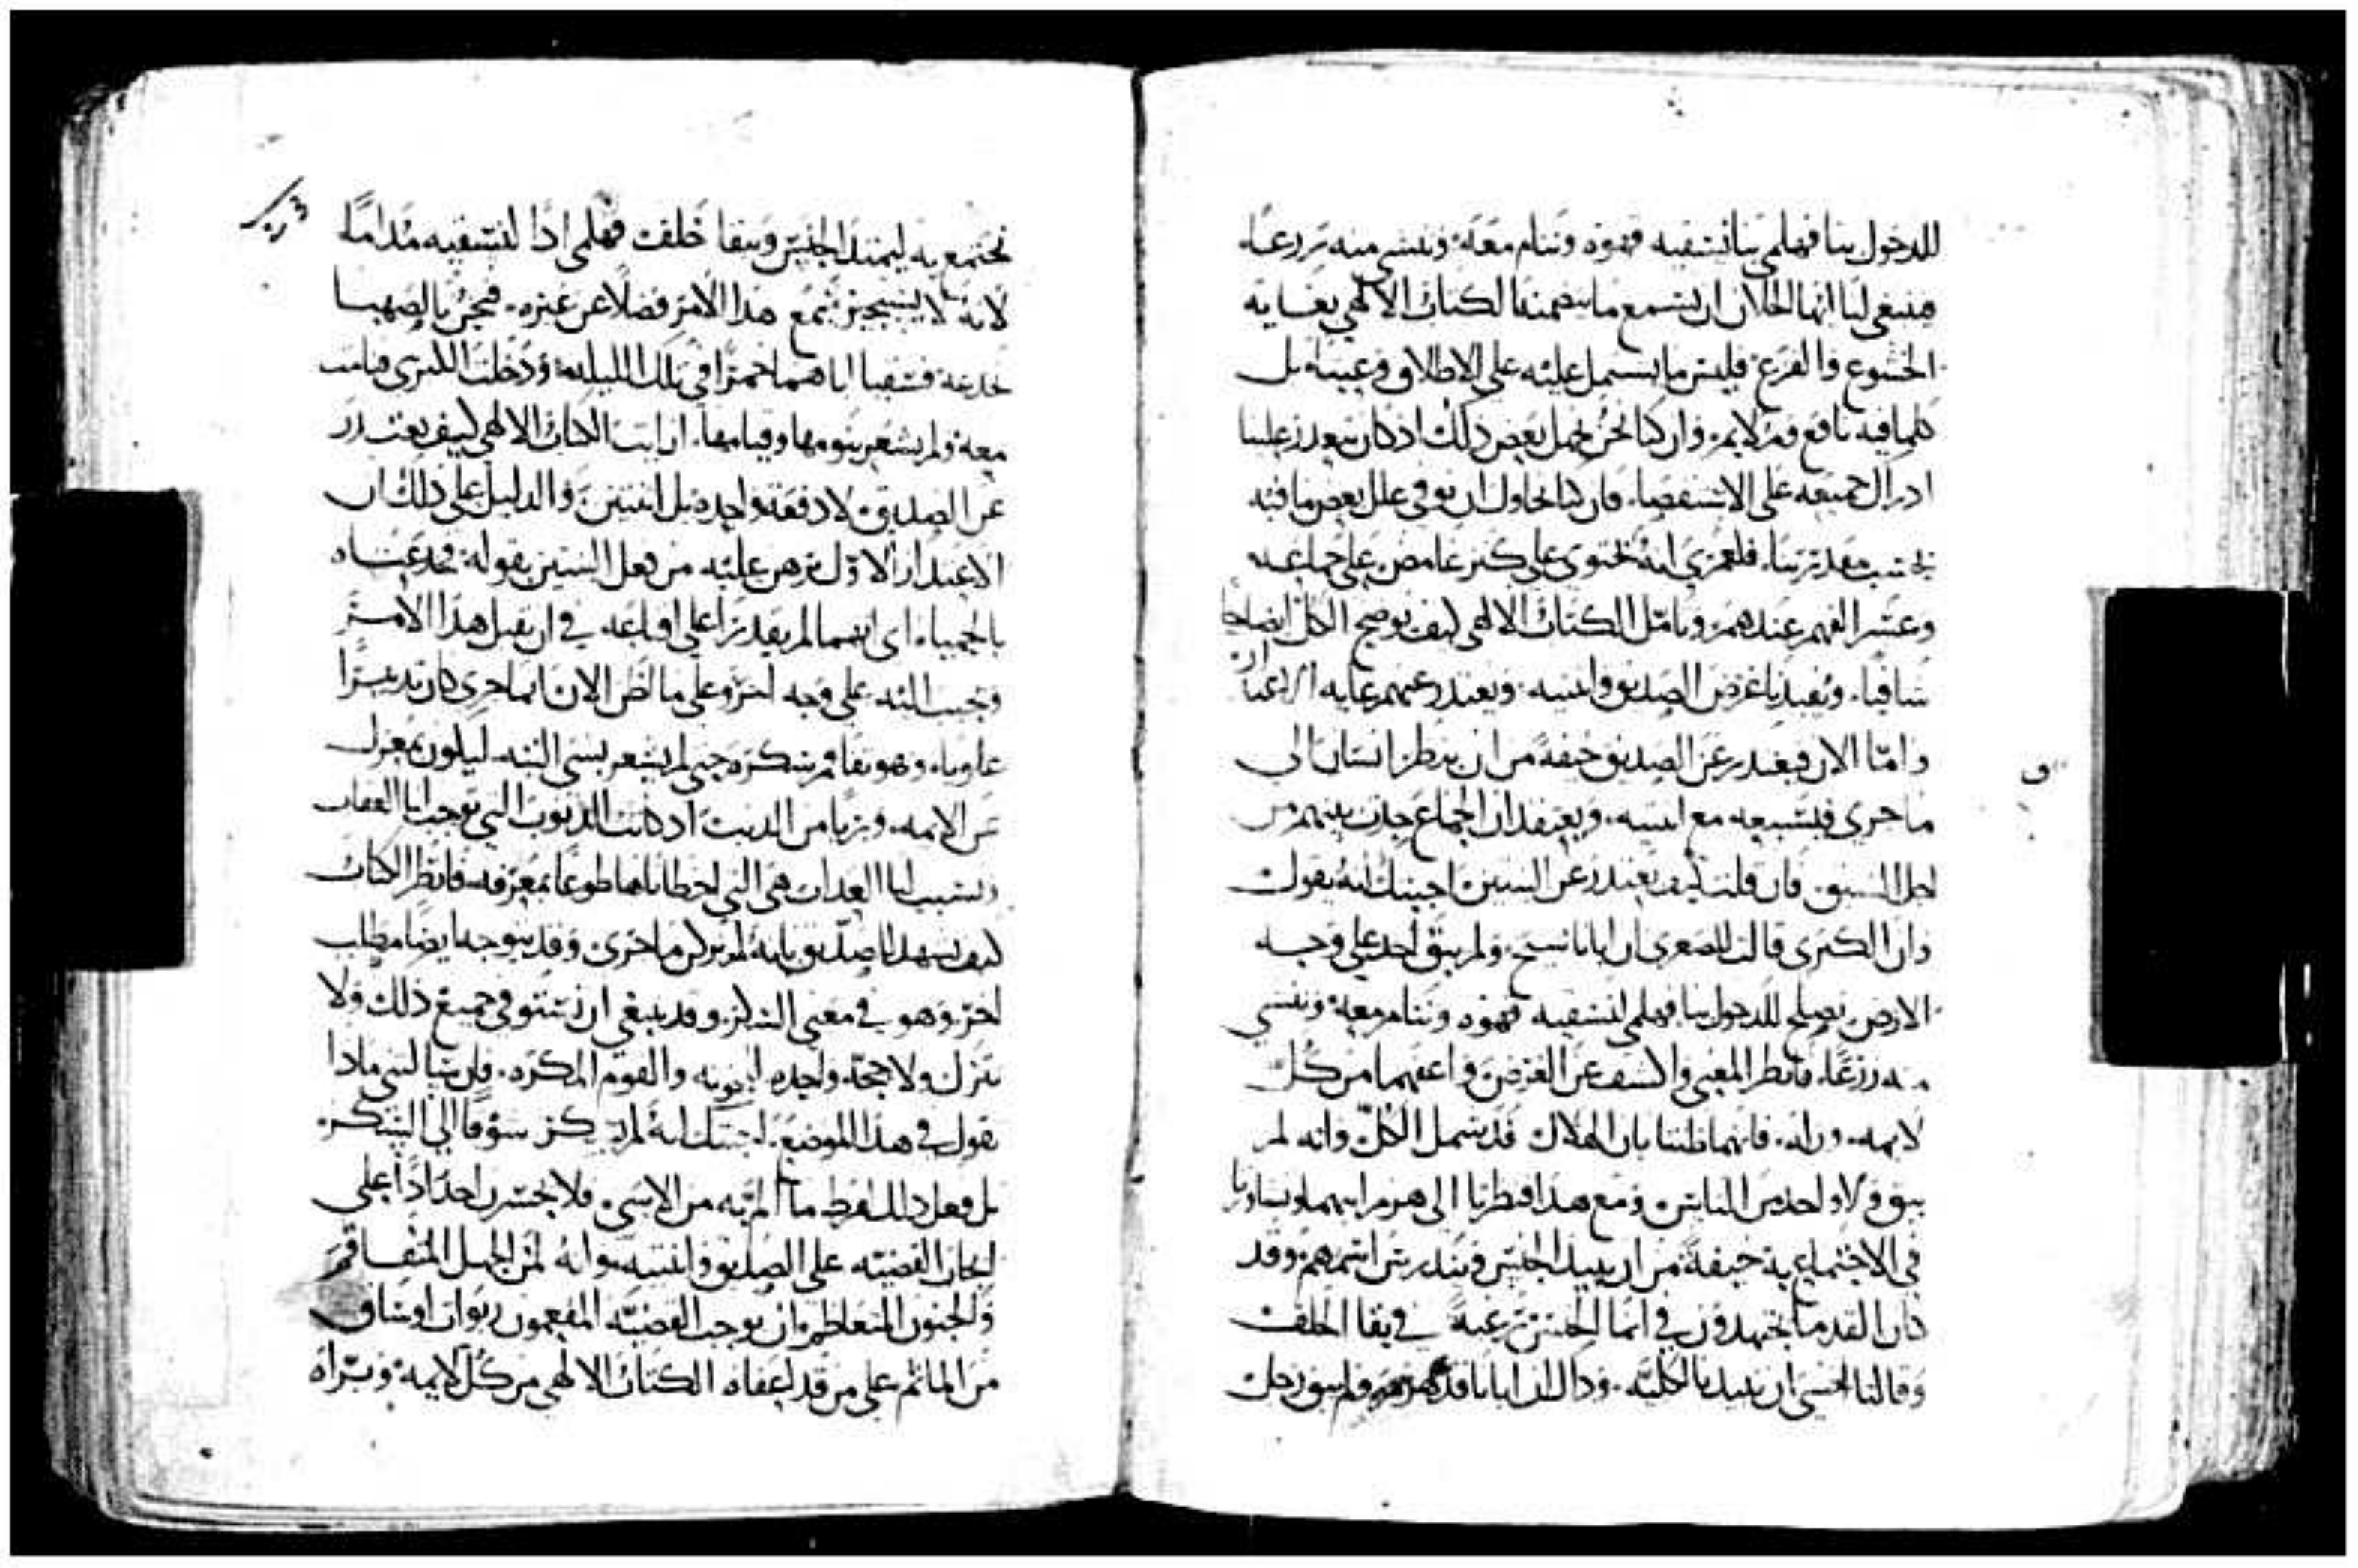 للدخول بنا فهلمي بنا نسقيه قهوه وننام معه وننشي منه زرعا.
فينبغي لنا ايها الخلان ان نسمع ما يتضمنه الكتاب الالهي بغايه
الخشوع والفزع فليس ما يشتمل عليه على الاطلاق وعبثا بل
كلما فيه نافع وملايم. وان كنا نحن نجهل بعض ذلك اذ كان يتعذر علينا
ادراك جميعه على الاستقصا. فان كنا نحاول ان نوفي علل بعض ما فيه
بحسب مقدرتنا. فلعمري انه يحتوي على كنز غامض على جماعه
وعسر الفهم عندهم. وتامل الكتاب الالهي كيف يوضح الكل ايضاحا
شافيا. ويفيدنا غرض الصديق وابنتيه. ويعتذر عنهم غايه الاعتذار
واما الان فيعتذر عن الصديق خيفة من ان ينظر انسان الى
ما جرى فيشنعه مع ابنتيه. ويعتقد ان الجماع حدث بينهم من
اجل الشبق فان قلت كيف يعتذر عن البنتين اجبتك انه يقول
وان الكبرى قالت للصغرى ان ابانا شيخ. ولم يبق احد على وجه
الارض يصلح للدخول بنا فهلمي لنسقيه قهوه وننام معه وننشي
منه زرعا. فانظر المعنى واكشف عن الغرض واعفهما من كل
لايمه وزله. فانهما ظنتا بان الهلاك قد شمل الكل وانه لم
يبق ولا واحد من الناس ومع هذا فنظرتا الى هرم ابيهما
في الاجتماع به خيفة من ان يبيد الجنس ويندرس اسمهم وقد
كان القدما يجتهدون في انما الجنس رغبة في بقا الخلف
وقالتا لخشي ان نبيد بالكليه. وذاك ان ابانا قد هرم ولم يبق رجل
نجتمع به ليمتد الجنس ويبقا خلف فهلمي اذا لنسقيه مداما
لانه لا يستجيز يسمع هذا الامر فضلا عن غيره. فنحن بالصهبا
نخدعه فسقيا اباهما خمرا في تلك الليله ودخلت الكبرى فنامت
معه ولم يشعر بنومها وقيامها. ارايت الكتاب الالهي كيف يعتذر
عن الصديق لا دفعة واحده بل اثنتين والدليل على ذلك ان
الاعتذار الاول برهن عليه من فعل البنتين بقوله خدعتاه
بالحمياه اي انهما لم يقدرا على اقناعه في ان يقبل هذا الامر
على وجه اخر وعلى ما اظن الان انما جرى كان تدبيرا
علويا. وهو بقا في سكره حتى لم يشعر بشي البته ليكون بمعزل
عن الايمه. وبريا من الذنب اذ كانت الذنوب التي توجب لنا العقاب
وتسبب لنا العذاب هي التي اخطاناها طوعا بمعرفه فانظر الكتاب
كيف يشهد للصديق بانه لم يدرك ما جرى وقد يتوجه ايضا مطلب
اخر وهو في معنى السكر وقد ينبغي ان نستوفي جميع ذلك ولا
نترك ولا حجه واحده
نقول في هذا الموضع. اجبتك انه لم يسكر شوقا الى السكر.
بل فعل ذلك لفرط ما الم به من الاسى. فلا يجسرن احد اذا على
ايجاب القضيه على الصديق وابنتيه وانه لمن الجهل المتفاقم
والجنون المتعاظم وان يوجب القضيه المفعمون
من الماثم على من قد اعفاه الكتاب الالهي من كل لايمه وبراه